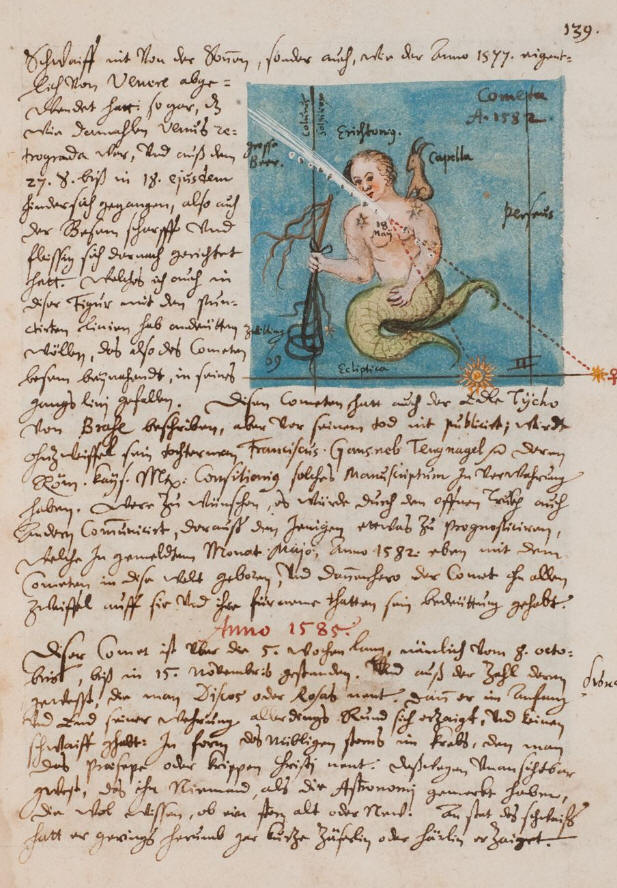 139.
Schwaiff nit von der Sonnen, sonder auch, wie der Anno 1577. eigent-
lich von Venere abge-
wendet hatt: so gar, dz
wie damahlen Venus re-
trograda war, und auß dem
27. 8. biß in 18. ejusdem
hindersich gegangen, also auch
der Besem scharpff und
fleissig sich darnach gerichtet
hatt. Welches ich auch in
diser Figur mit den pun-
ctirten linien hab andeütten
wöllen, das also des Cometen
besem beynahendt, in seines
gangs lini gefallen.
Cometa
A. 1582.
Colurus
solstitiorum
Erichtong.
grosse
Beer.
Capella
Perseus
18
May
Zwilling
69
Ecliptica
II
Disen Cometen hatt auch der Edle Tÿcho
von Brahe beschriben, aber vor seinem tod nit publicirt; wirdt
ohnzweiffel sein tochterman Franciscus Gansneb Tengnagel
Röm. Kays. May: solches Manuscriptum in verwahrung
haben. Were zu wünschen, es würde durch den offnen Truckh auch
andern Communicirt, darauß den jenigen etwas zu prognosticiren,
welche in gemeldtem Monat Majo, Anno 1582. eben mit dem
Cometen in dise welt geboren, und dannenhero der Comet ohn allen
zweiffel auff sie und ihre fürneme thatten sein bedeüttung gehabt.
Anno 1585.
Diser Comet ist über die 5. wochen lang, nämlich vom 8. octo-
bris, biß in 15. Novembris gestanden. Und auß der Zahl deren
gewesst, die man Discos oder Rosas nent. Dann er im Anfang
und End seiner wehrung allerdings Rund sich erzaigt, und keinen
schwaiff ghabt: In form des Nübligen sterns im Krebs, den man
das Præsepe oder krippen Christi nent. Deßwegen unansichtbar
gwest, das ihn Niemand als die Astronomi gemerkt haben,
die wol wissen, ob ein stern alt oder New. An stat des schwaiffs
hatt er gerings herumb gar kurtze Zäserlin oder härlin erzaiget.